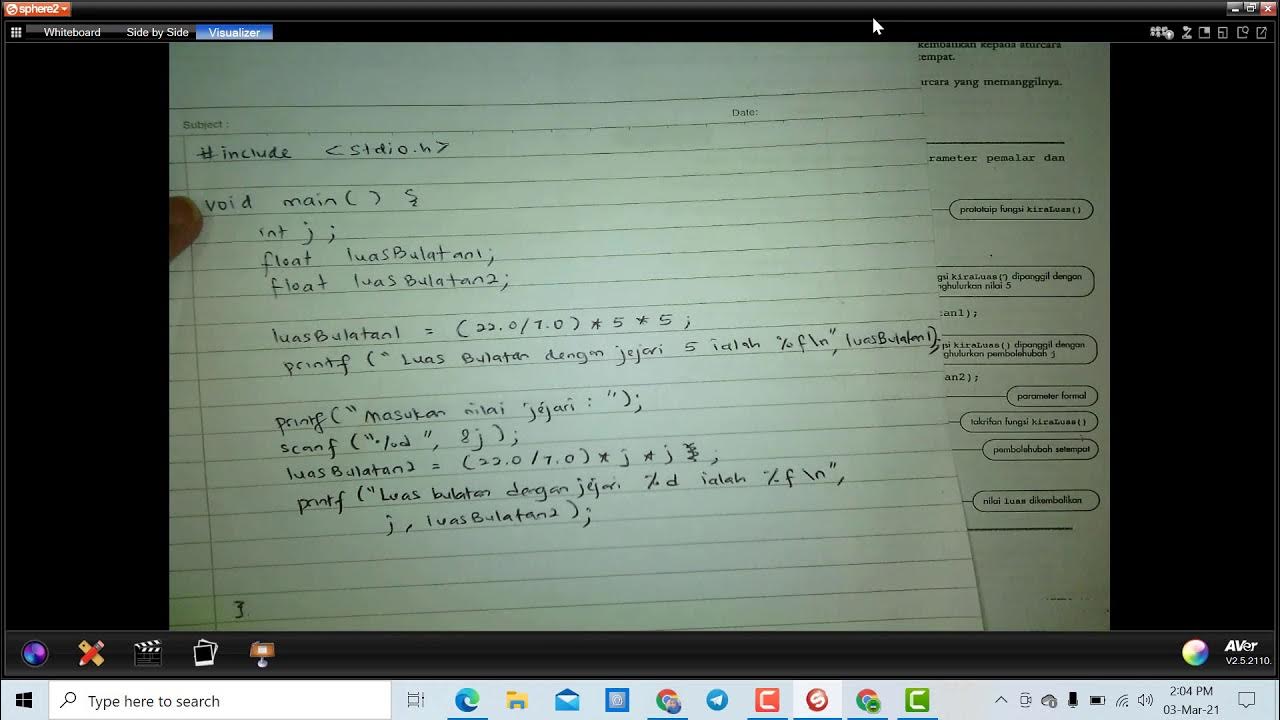 sphere2
Whiteboard Side by Side Visualizer
kembalikan kepada aturcara
tempat.
urcara yang memanggilnya.
Subject :
Date:
#include <stdio.h>
void main() {
int j ;
float luasBulatan1;
float luasBulatan2;
luasBulatan1 = (22.0/7.0) * 5 * 5 ;
printf (" Luas Bulatan dengan jejari 5 ialah %f\n", luasBulatan1);
printf(" Masukan nilai jejari : ");
scanf ("%d ", &j );
luasBulatan2 = (22.0/7.0) * j * j ;
printf ("Luas bulatan dengan jejari %d ialah %f \n",
j , luasBulatan2 );
}
rameter pemalar dan
prototaip fungsi kiraLuas()
gsi kiraLuas() dipanggil dengan
nghulurkan nilai 5
tan1);
si kiraLuas() dipanggil dengan
ghulurkan pembolehubah j
an2);
parameter formal
takrifan fungsi kiraLuas()
pembolehubah setempat
nilai luas dikembalikan
AVer
V2.5.2110.
Type here to search
2:04 PM
03-Mar-21